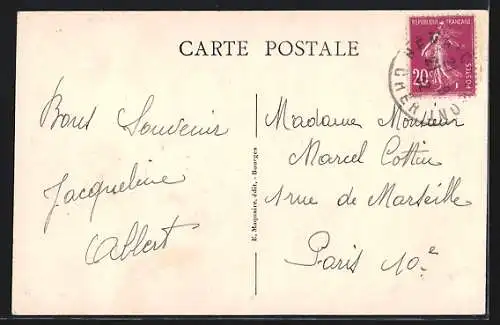 CARTE POSTALE
REPUBLIQUE FRANÇAISE
20c
POSTES
CHER
Bons Souvenir
Jacqueline
Albert
E. Maquaire, édit. - Bourges
Madame Monsieur
Marcel Cottin
1 rue de Marseille
Paris 10.e